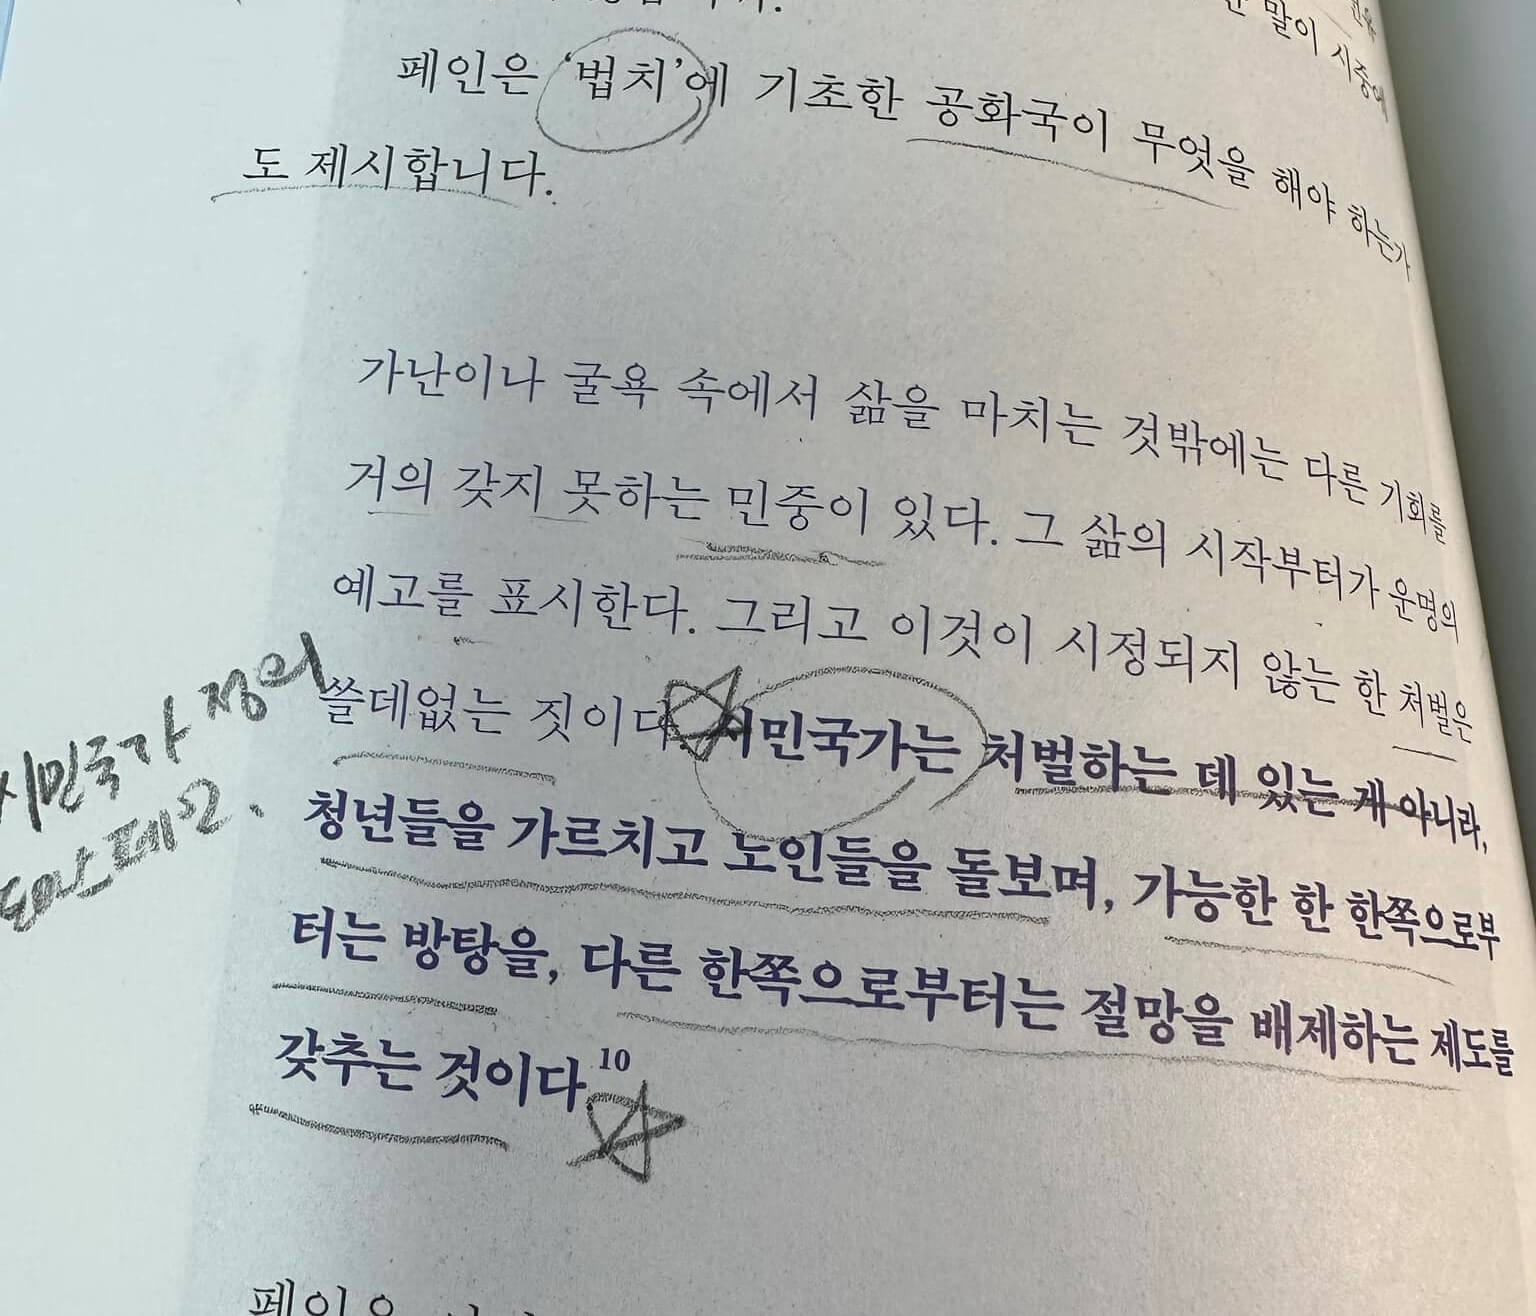 한 말이 시중에
페인은 ‘법치’에 기초한 공화국이 무엇을 해야 하는가
도 제시합니다.
가난이나 굴욕 속에서 삶을 마치는 것밖에는 다른 기회를
거의 갖지 못하는 민중이 있다. 그 삶의 시작부터가 운명의
예고를 표시한다. 그리고 이것이 시정되지 않는 한 처벌은
쓸데없는 짓이다. 시민국가는 처벌하는 데 있는 게 아니라,
청년들을 가르치고 노인들을 돌보며, 가능한 한 한쪽으로부
터는 방탕을, 다른 한쪽으로부터는 절망을 배제하는 제도를
갖추는 것이다10
시민국가 정의
페인은